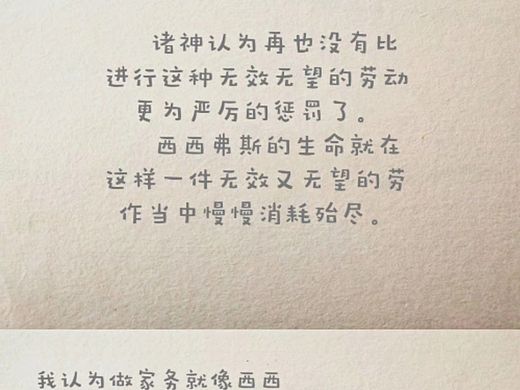 诸神认为再也没有比
进行这种无效无望的劳动
更为严厉的惩罚了。
西西弗斯的生命就在
这样一件无效又无望的劳
作当中慢慢消耗殆尽。
我认为做家务就像西西